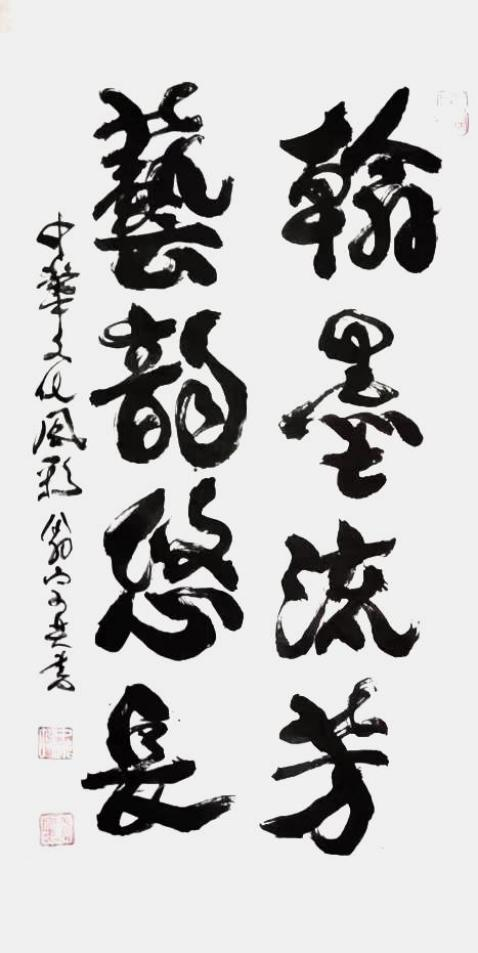 翰墨流芳
藝韵悠長
中華文化風彩